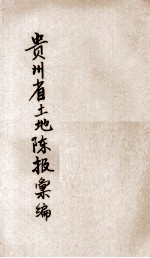 贵州省土地陈报汇编